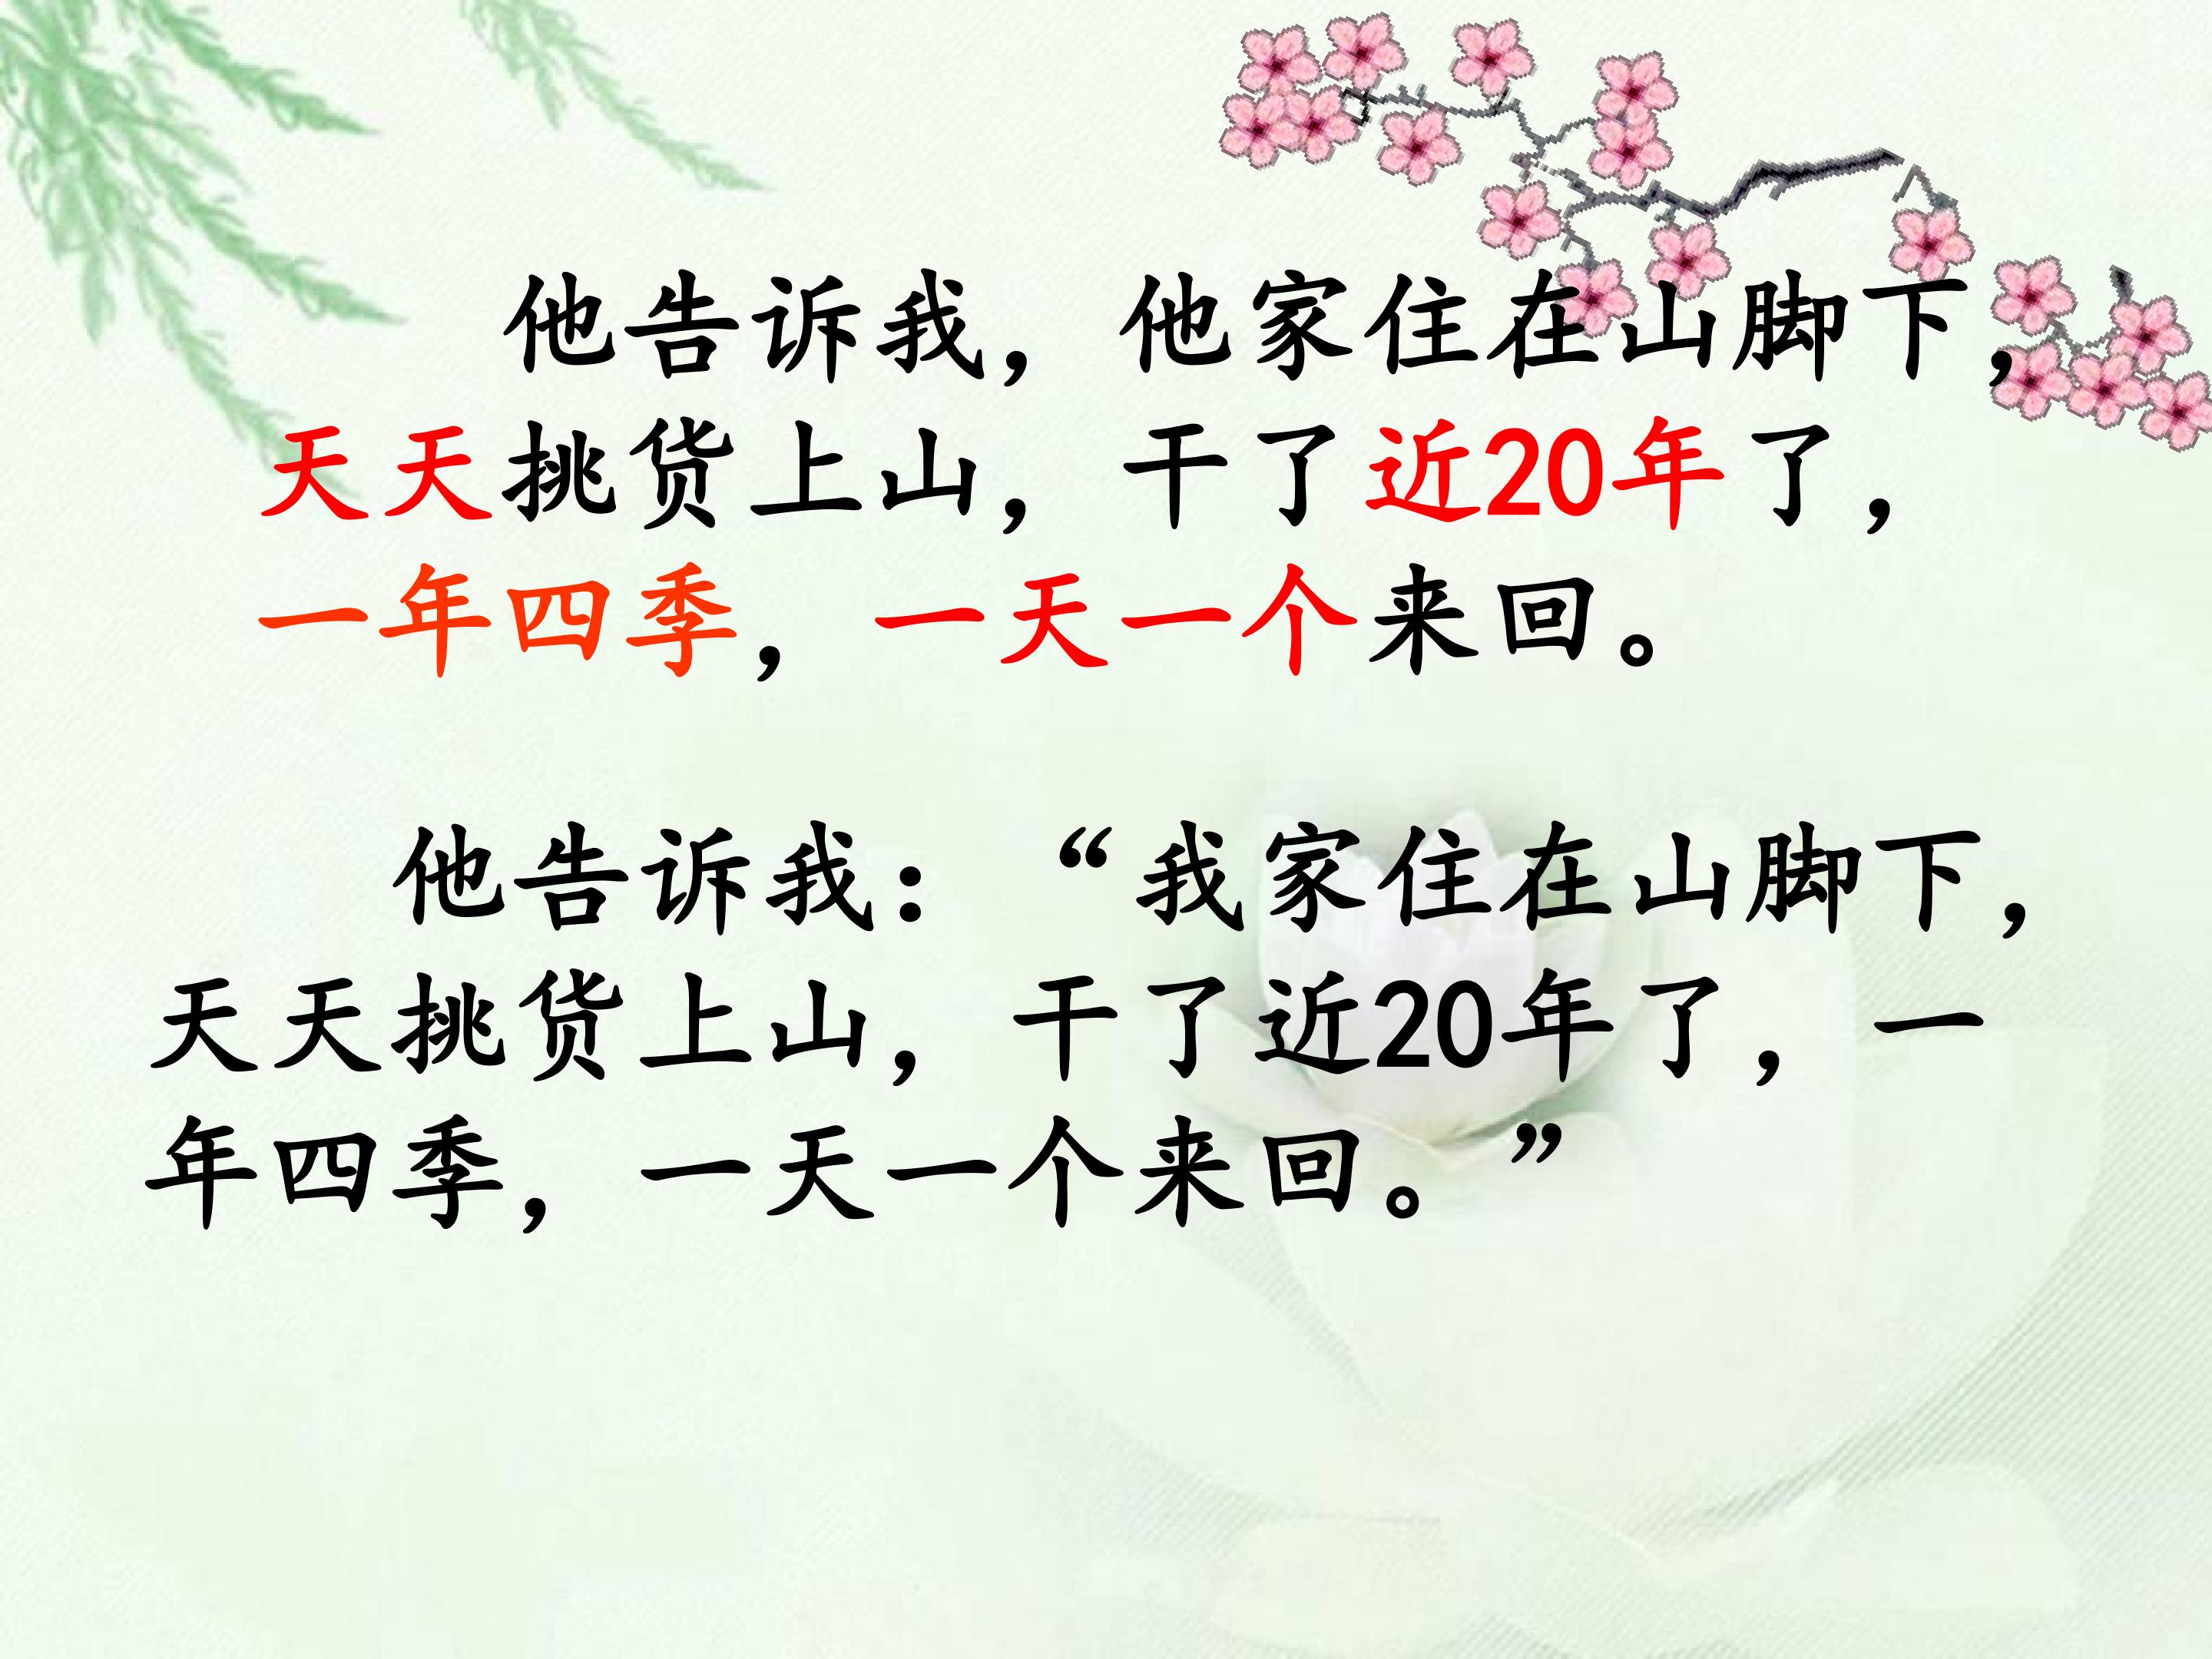 他告诉我，他家住在山脚下，
天天挑货上山，干了近20年了，
一年四季，一天一个来回。
他告诉我：“我家住在山脚下，
天天挑货上山，干了近20年了，一
年四季，一天一个来回。”